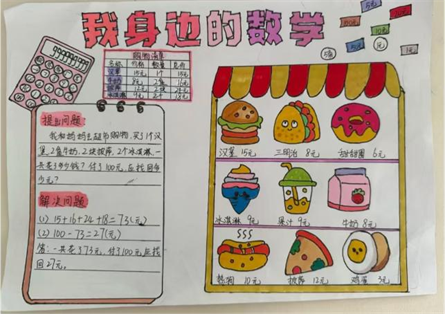 我身边的数学
购物清单
名称 价格 数量 总价
汉堡 15元 1个 15元
提出问题
我和奶奶去超市购物，买了1个汉
堡，2盒牛奶，2块披萨，2个冰淇淋，一
共花了多少钱？付了100元，应找回多
少元？
解决问题
(1) 15+16+24+18=73(元)
(2) 100-73=27(元)
答：一共花了73元，付了100元，应找
回27元。
汉堡 15元
三明治 8元
甜甜圈 6元
冰淇淋 9元
果汁 9元
牛奶 8元
热狗 10元
披萨 12元
鸡蛋 3元